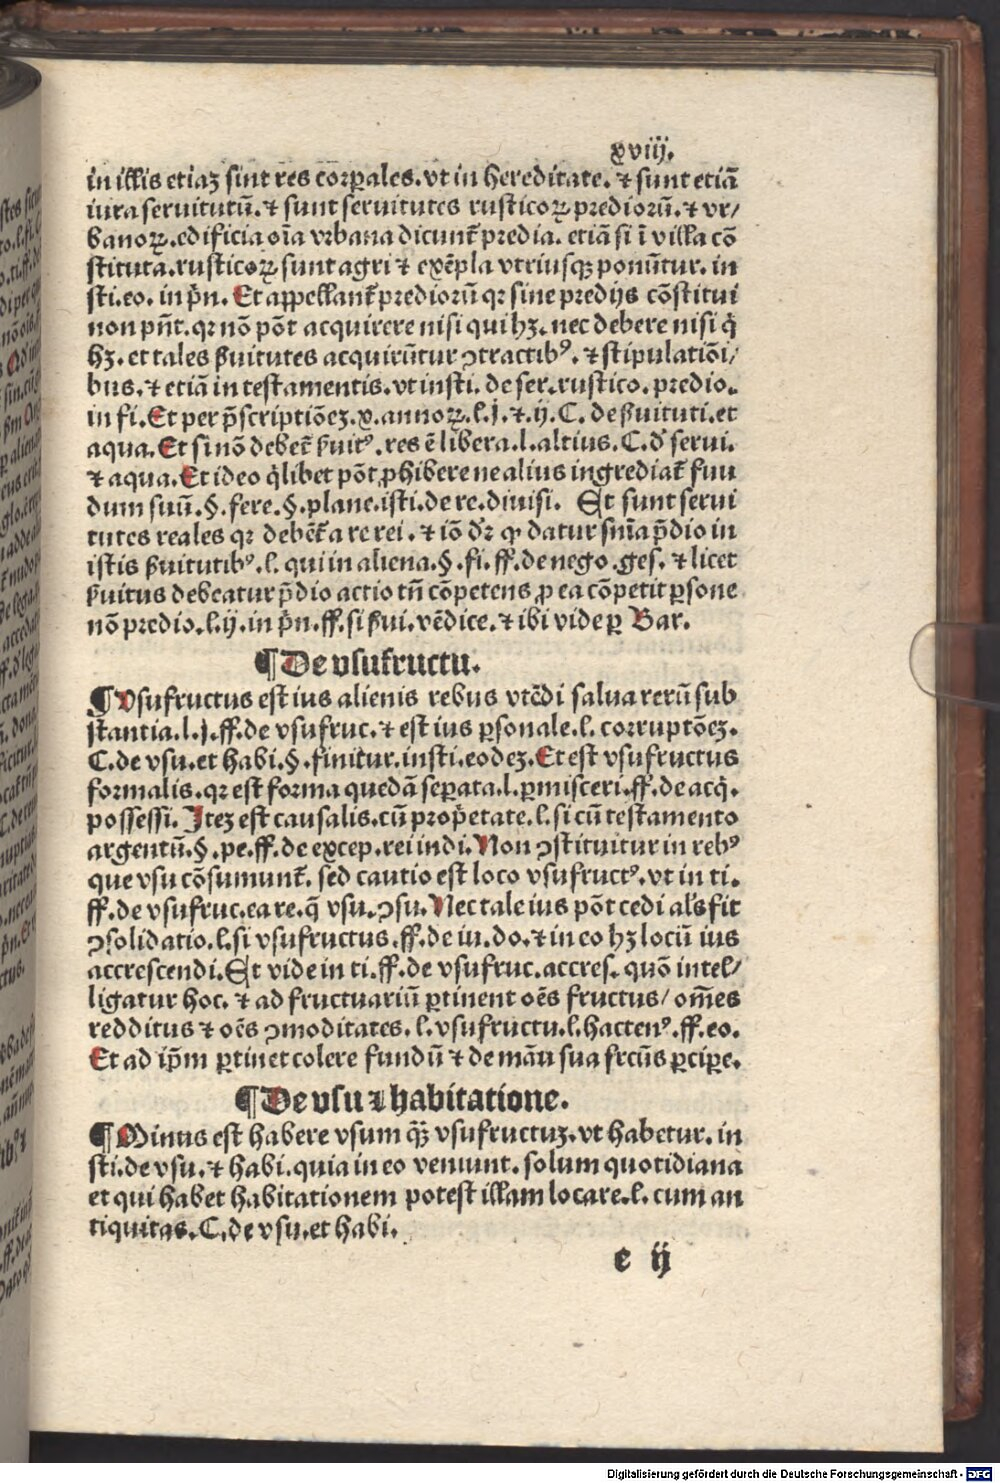 xviij.
in illis etiaꝫ sint res corꝑales. vt in hereditate. ⁊ sunt etiā
iura seruitutū. ⁊ sunt seruitutes rusticoꝝ prediorū. ⁊ vr/
banoꝝ. edificia oīa vrbana dicunt᷑ predia. etiā si ī villa cō
stituta. rusticoꝝ sunt agri ⁊ exēpla vtriusqꝫ ponūtur. in
sti. eo. in p̄n. Et appellant᷑ prediorū qꝛ sine predijs cōstitui
non pn̄t. qꝛ nō pōt acquirere nisi qui hꝫ. nec debere nisi q̇
hꝫ. et tales ẜuitutes acquirūtur ꝯtractibꝰ. ⁊ stipulatiōi/
bus. ⁊ etiā in testamentis. vt insti. de ser. rustico. predio.
in fi. Et per p̄scriptiōeꝫ. x. annoꝝ. l. j. ⁊. ij. C. de ẜuituti. et
aqua. Et si nō debet᷑ ẜuitꝰ. res ē libera. l. altius. C. d̓ serui.
⁊ aqua. Et ideo q̇libet pōt ꝓhibere ne alius ingrediat᷑ fun
dum suū. §. fere. §. plane. isti. de re. diuisi. Et sunt serui
tutes reales qꝛ debēt᷑ a re rei. ⁊ iō dꝛ̄ ꝙ datur sn̄ia p̄dio in
istis ẜuitutibꝰ. l. qui in aliena. §. fi. ff. de nego. ges. ⁊ licet
ẜuitus debeatur p̄dio actio tn̄ cōpetens ꝓ ea cōpetit ꝑsone
nō predio. l. ij. in p̄n. ff. si ẜui. vēdice. ⁊ ibi vide ꝑ Bar.
¶ De vsufructu.
¶ Vsufructus est ius alienis rebus vtēdi salua rerū sub
stantia. l. j. ff. de vsufruc. ⁊ est ius ꝑsonale. l. corruptōeꝫ.
C. de vsu. et habi. §. finitur. insti. eodeꝫ. Et est vsufructus
formalis. qꝛ est forma quedā seꝑata. l. ꝑmisceri. ff. de acq̇.
possessi. Iteꝫ est causalis. cū prop̄etate. l. si cū testamento
argentū. §. pe. ff. de excep. rei iudi. Non ꝯstituitur in rebꝰ
que vsu cōsumunt᷑. sed cautio est loco vsufructꝰ. vt in ti.
ff. de vsufruc. ea re. q̄ vsu. ꝯsu. Nec tale ius pōt cedi al̓s fit
ꝯsolidatio. l. si vsufructus. ff. de iu. do. ⁊ in eo hꝫ locū ius
accrescendi. Et vide in ti. ff. de vsufruc. accres. quō intel/
ligatur hoc. ⁊ ad fructuariū ꝑtinent oēs fructus/ om̄es
redditus ⁊ oēs ꝯmoditates. l. vsufructu. l. hactenꝰ. ff. eo.
Et ad ip̄m ꝑtinet colere fundū ⁊ de manu sua frc̄us ꝑciꝑe.
¶ De vsu ⁊ habitatione.
¶ Minus est habere vsum qꝫ̄ vsufructuꝫ. vt habetur. in
sti. de vsu. ⁊ habi. quia in eo veniunt. solum quotidiana
et qui habet habitationem potest illam locare. l. cum an
tiquitas. C. de vsu. et habi.
e ij
Digitalisierung gefördert durch die Deutsche Forschungsgemeinschaft - DFG